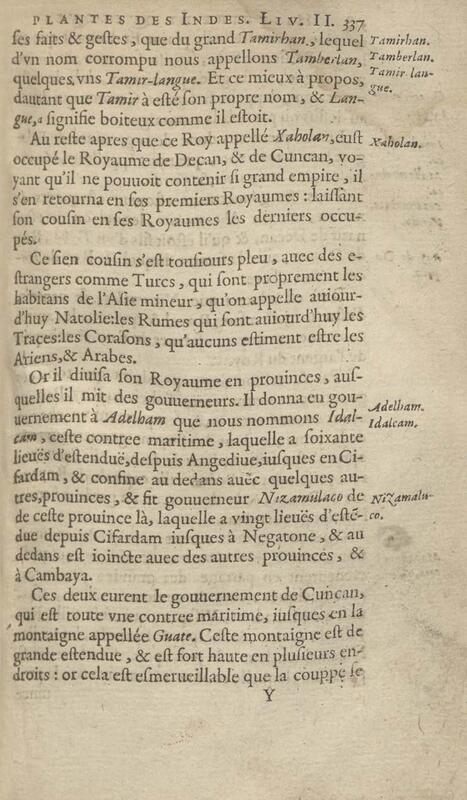 PLANTES DES INDES. LIV. II. 337
ſes faits & geſtes, que du grand Tamirhan, lequel
d'vn nom corrompu nous appellons Tamberlan,
quelques vns Tamir-langue. Et ce mieux à propos,
dautant que Tamir à eſté ſon propre nom, & Lan-
gue, ſignifie boiteux comme il eſtoit.
Au reſte apres que ce Roy appellé Xaholan, euſt
occupé le Royaume de Decan, & de Cuncan, vo-
yant qu'il ne pouuoit contenir ſi grand empire, il
s'en retourna en ſes premiers Royaumes : laiſſant
ſon couſin en ſes Royaumes les derniers occu-
pés.
Ce ſien couſin s'eſt touſiours pleu, auec des e-
ſtrangers comme Turcs, qui ſont proprement les
habitans de l'Aſie mineur, qu'on appelle auiour-
d'huy Natolie: les Rumes qui ſont auiourd'huy les
Traces: les Coraſons, qu'aucuns eſtiment eſtre les
Ariens, & Arabes.
Or il diuiſa ſon Royaume en prouinces, auſ-
quelles il mit des gouuerneurs. Il donna en gou-
uernement à Adelham que nous nommons Idal-
cam, ceſte contree maritime, laquelle a ſoixante
lieuës d'eſtenduë, deſpuis Angediue, iuſques en Ci-
fardam, & confine au dedans auec quelques au-
tres, prouinces, & fit gouuerneur Nizamulaco de
de ceſte prouince là, laquelle a vingt lieuës d'eſtē-
due depuis Cifardam iuſques à Negatone, & au
dedans eſt ioincte auec des autres prouinces, &
à Cambaya.
Ces deux eurent le gouuernement de Cuncan,
qui eſt toute vne contree maritime, iuſques en la
montaigne appellée Guate. Ceſte montaigne eſt de
grande eſtendue, & eſt fort haute en pluſieurs en-
droits : or cela eſt eſmerueillable que la couppe ſe
Y
Tamirhan.
Tamberlan.
Tamir lan-
gue.
Xaholan.
Adelham.
Idalcam.
Nizamalu-
co.